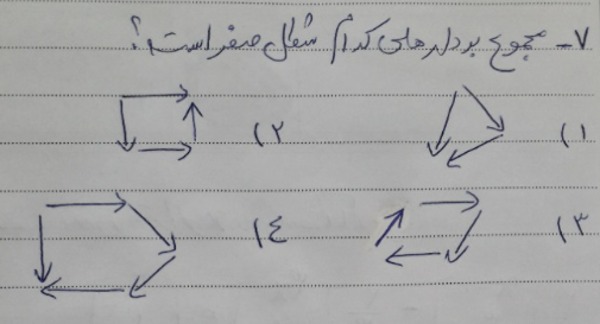 ۷- مجموع بردارهای کدام شکل صفر است؟
۱) ۲)
۳) ۴)